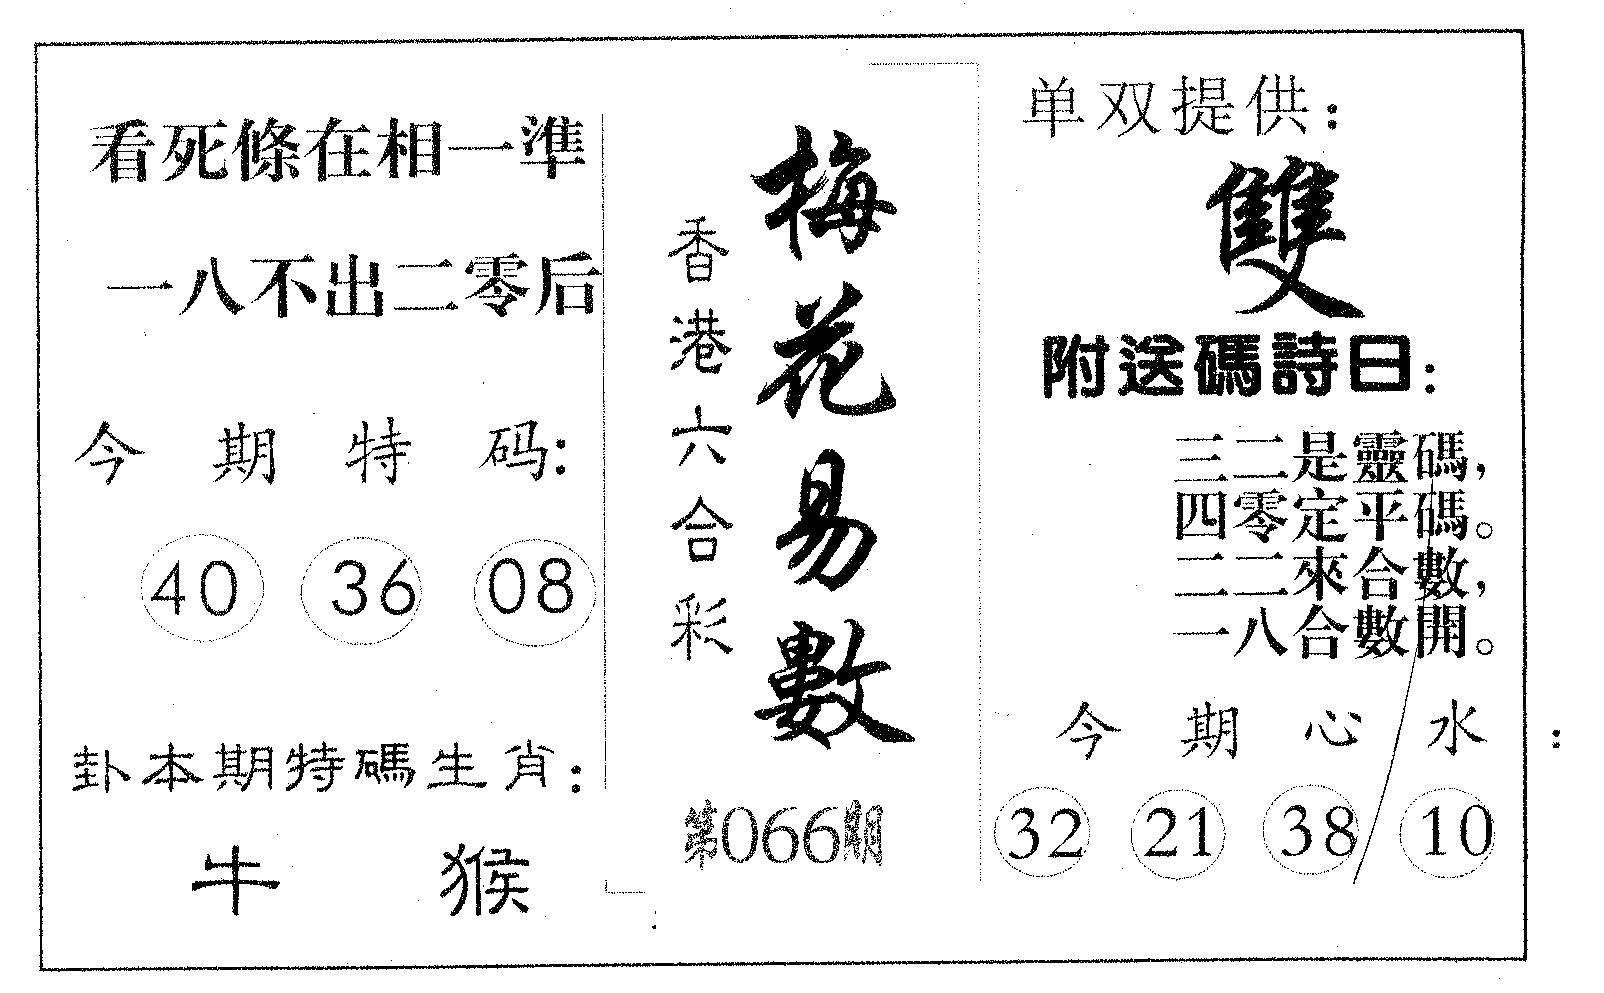 看死條在相一準
一八不出二零后
今期特码:
40 36 08
卦本期特碼生肖:
牛 猴
香港六合彩
梅花易數
第066期
单双提供:
雙
附送碼詩曰:
三二是靈碼,
四零定平碼。
二二來合數,
一八合數開。
今期心水:
32 21 38 10